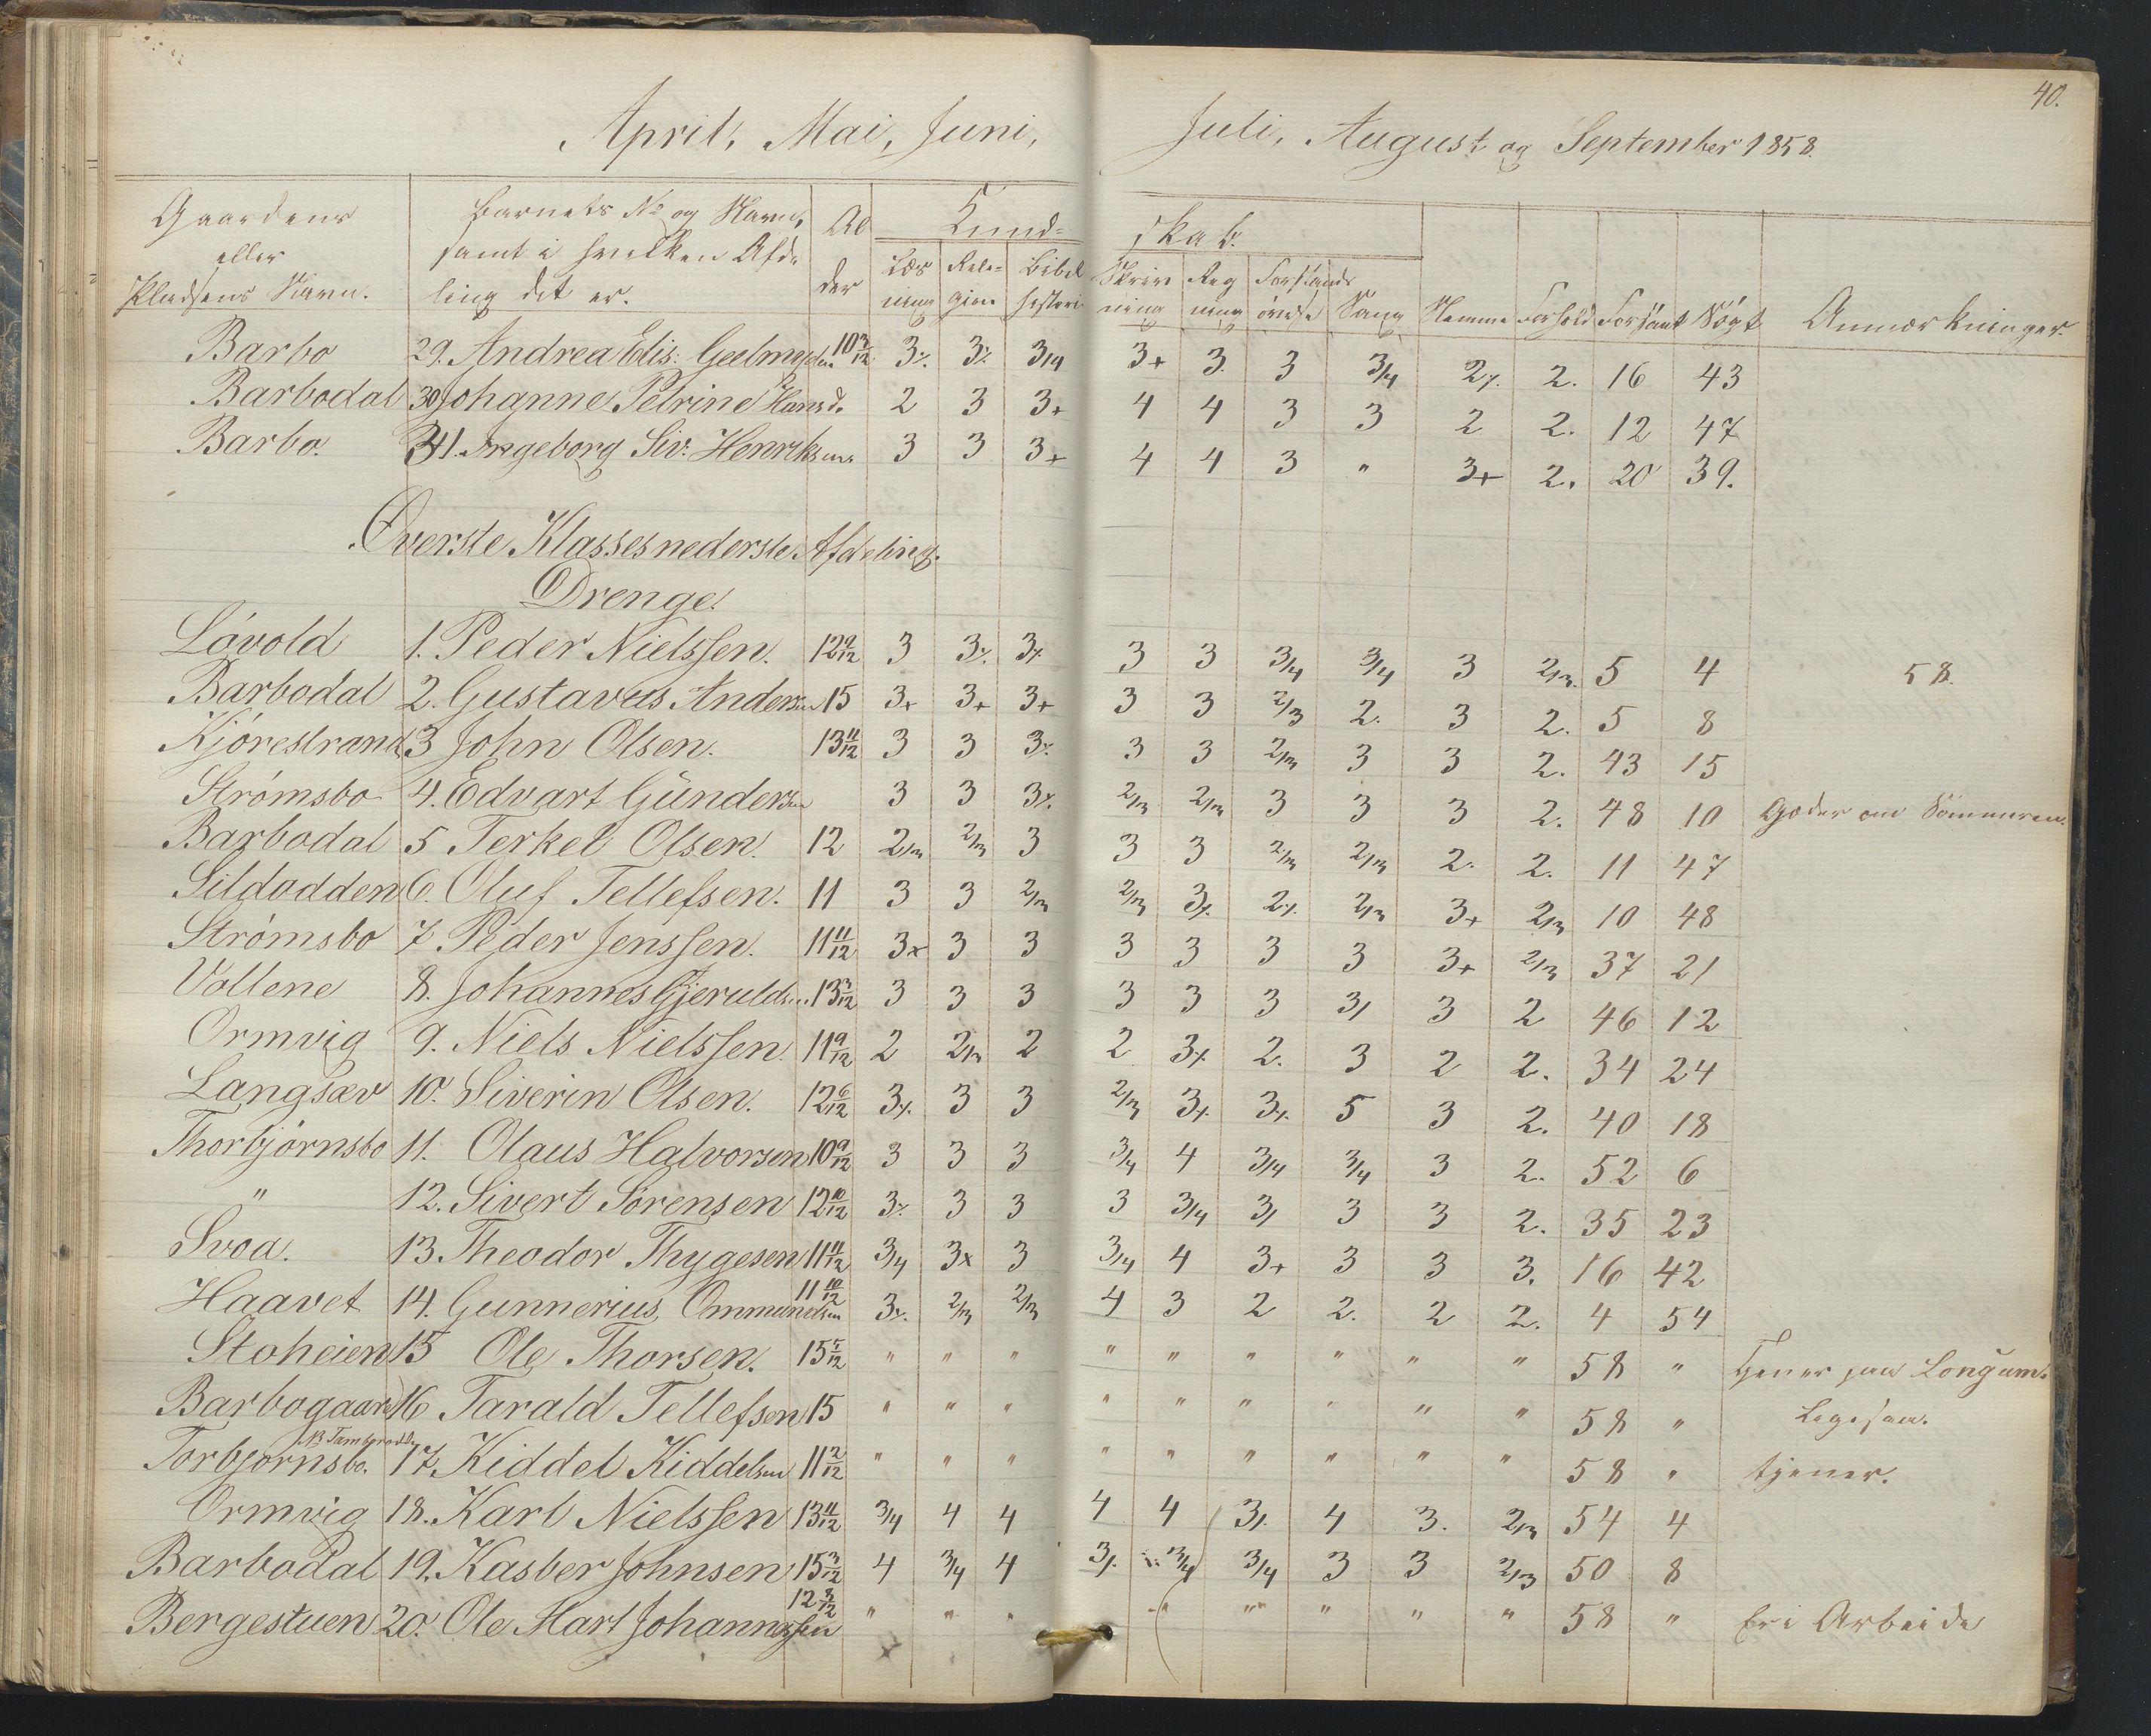 40.
April, Mai, Juni, Juli, August og September 1858.
Gaardens eller Pladsens Navn. | Barnets No og Navn, samt i hvilken Afdeling det er. | Alder | Kundskab. | Læsning | Religion | Bibelhistori | Skrivning | Regning | Forstands øvelse | Sang | Nemme | Forhold | Forsømt | Søgt | Anmærkninger.
Barbo 29. Andrea Edis: 10 3/12 3⁒ 3⁒ 3/4 3+ 3. 3 3/4 2⁒ 2. 16 43
Barbodal 30 Johanne Petrine Hansd. 2 3 3+ 4 4 3 3 2 2. 12 47
Barbo. 31. Ingeborg Siv: Henriksen 3 3 3+ 4 4 3 " 3+ 2. 20 39.
Øverste Klasses nederste Afdeling.
Drenge.
Løvold 1. Peder Nielssen. 12 9/12 3 3⁒ 3⁒ 3 3 3/4 3/4 3 2/3. 5 4 58.
Barbodal 2. Gustavus Andersen 15 3+ 3+ 3+ 3 3 2/3 2. 3 2. 5 8
Kjørestrand 3 John Olsen. 13 11/12 3 3 3⁒ 3 3 2/3 3 3 2. 43 15
Strømsbo 4. Edvart Gundersen 3 3 3⁒ 2/3 2/3 3 3 3 2. 48 10 Gæder om Sommeren.
Barbodal 5 Terkel Olsen. 12 2/3 2/3 3 3 3 2/3 2/3 2. 2. 11 47
Sildodden 6. Oluf Tellefsen. 11 3 3 2/3 2/3 3⁒ 2⁒ 2/3 3+ 2/3 10 48
Strømsbo 7 Peder Jenssen. 11 11/12 3x 3 3 3 3 3 3 3+ 2/3 37 21
Vollene 8. Johannes Gjeruldsen. 13 3/12 3 3 3 3 3 3 3/ 3 2 46 12
Ormvig 9. Niels Nielssen. 11 9/12 2 2/3 2 2 3⁒ 2. 3 2 2. 34 24
Langsæv 10. Siverin Olsen. 12 6/12 3⁒ 3 3 2/3 3⁒ 3⁒ 5 3 2. 40 18
Thorbjørnsbo 11. Olaus Halvorsen 10 9/12 3 3 3 3/4 4 3/4 3/4 3 2. 52 6
" 12. Sivert Sørensen 12 10/12 3⁒ 3 3 3 3/4 3/ 3 3 2. 35 23
Svoa. 13. Theodor Thygesen 11 11/12 3/4 3x 3 3/4 4 3+ 3 3 3. 16 42
Haavet 14. Gunnerius Ommundsen 11 10/12 3⁒ 2/3 2/3 4 3 2 2. 2 2. 4 54
Stoheien 15 Ole Thorsen. 15 5/12 " " " " " " " " " 58 " Tjener paa Longum.
Barbogaard 16 Tarald Tellefsen 15 " " " " " " " " " 58 " Ligesaa.
Torbjornsbo. 17. Kiddel Kiddelsen 11 2/12 " " " " " " " " " 58 " tjener.
Ormvig 18. Karl Nielssen 13 11/12 3/4 4 4 4 4 3⁒ 4 3. 2/3 54 4
Barbodal 19. Kasber Johnsen 15 3/12 4 3/4 4 3⁒ 3/4 3/4 3 3 2/3 50 8
Bergestuen 20. Ole Mart Johannessen 12 8/12 " " " " " " " " 58 " Eri Arbeide